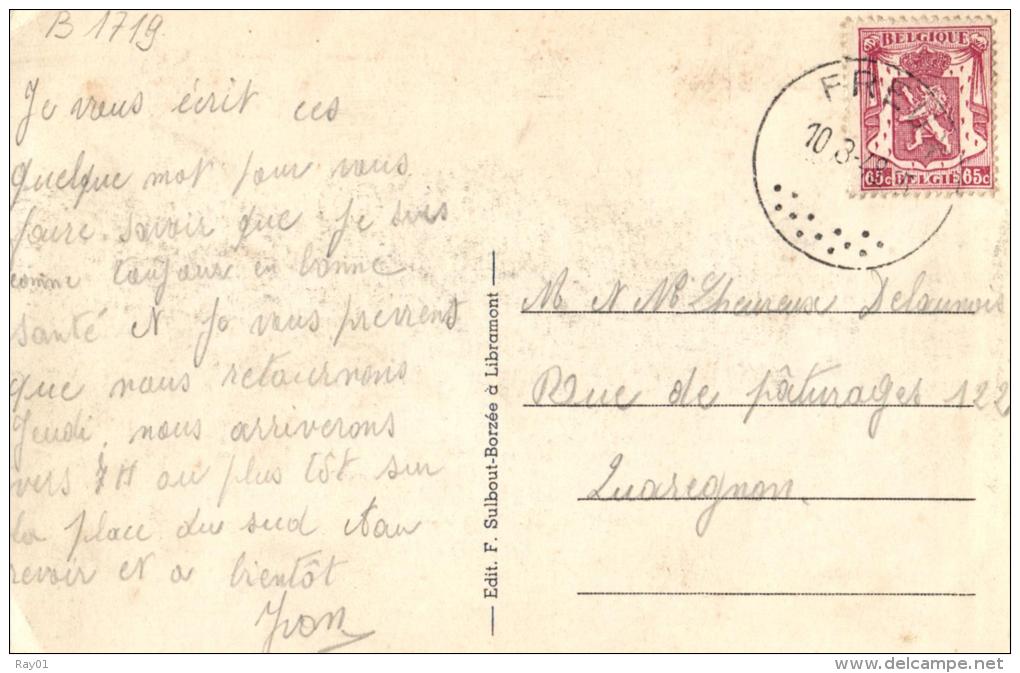 B 1719
Je vous écrit ces
quelque mot pour vous
faire savoir que je suis
comme toujour en bonne
santé Je vous previens
que nous retournons
Jeudi, nous arriverons
vers 7H ou plus tôt sur
la place du sud au
revoir et a bientôt
Yvon
Edit. F. Sulbout-Borzée à Libramont
BELGIQUE
65c BELGIE 65c
10.3-4
M Lheureux Delaunois
Rue de pâturages 122
Quaregnon
Ray01
www.delcampe.net